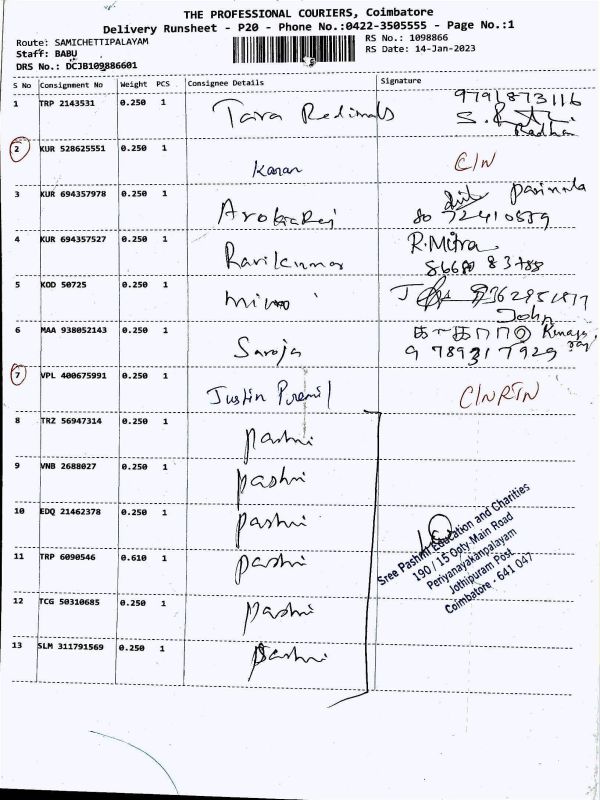 THE PROFESSIONAL COURIERS, Coimbatore
Delivery Runsheet - P20 - Phone No.:0422-3505555 - Page No.:1
Route: SAMICHETTIPALAYAM
RS No.: 1098866
Staff: BABU
RS Date: 14-Jan-2023
DRS No.: DCJB109886601
S No Consignment No Weight PCS Consignee Details Signature
1 TRP 2143531 0.250 1 Tara Redimads 9791873116
2 KUR 528625551 0.250 1 Karan C/N
3 KUR 694357978 0.250 1 Arokiaraj
4 KUR 694357527 0.250 1 Ravikumar R.Mitra
5 KOD 50725 0.250 1
John
6 MAA 938052143 0.250 1 Saroja
9 789317929
7 VPL 400675991 0.250 1 Justin C/N RTN
8 TRZ 56947314 0.250 1 Pashmi
9 VNB 2688027 0.250 1 Pashmi
10 EDQ 21462378 0.250 1 Pashmi
11 TRP 6090546 0.610 1 Pashmi
12 TCG 50310685 0.250 1 Pashmi
13 SLM 311791569 0.250 1 Pashmi
Sree Pashmi Education and Charities
190 / 15 Ooty Main Road
Periyanayakanpalayam
Jothipuram Post
Coimbatore - 641 047